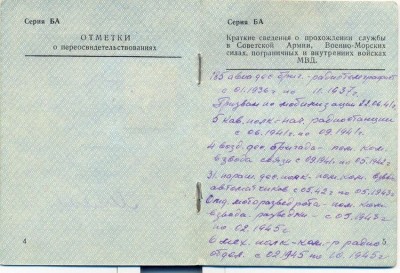 Серия БА
ОТМЕТКИ
о переосвидетельствованиях
4
Серия БА
Краткие сведения о прохождении службы
в Советской Армии, Военно-Морских
силах, пограничных и внутренних войсках
МВД.
авиадес. бриг. - радиотелеграфист
с 01.1936г по 11.1937г.
Призван по мобилизации 22.06.41г.
5 кав. полк - нач. радиостанции
с 06.1941г. по 09.1941г.
4 возд. дес. бригада - пом. ком.
взвода связи с 09.1941г. по 05.1942г.
дес. полк - пом. ком. взвода
автоматчиков с 05.42г по 05.1943г.
моторазвед рота - пом. ком.
взвода разведки - с 05.1943г
по 02.1945г.
мех. полк - ком-р радио
отдел. с 02.1945 по 10.1945г.